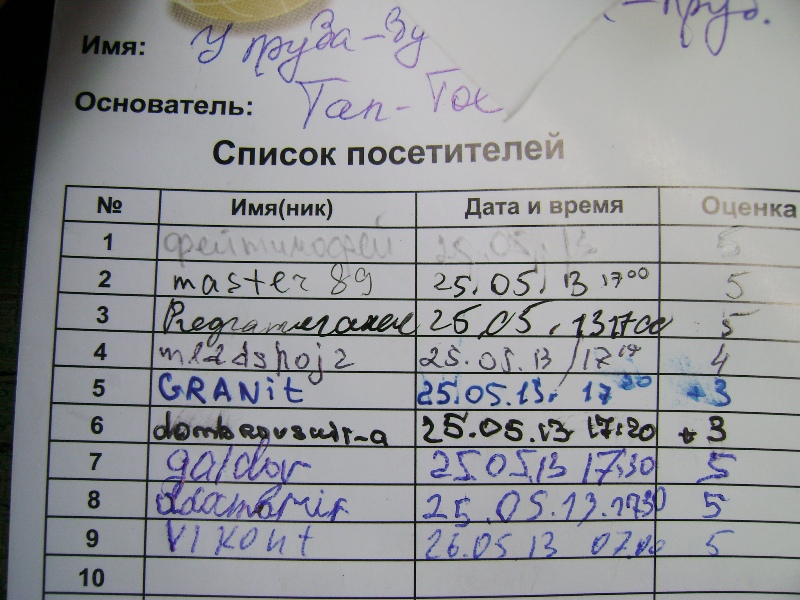 Имя: У пруда-Зу
Основатель: Тап-Ток
Список посетителей
№ Имя(ник) Дата и время Оценка
1 25.05.13 5
2 master 89 25.05.13 17⁰⁰ 5
3 25.05.13 1700 5
4 mladshoj2 25.05.13 4
5 GRANit 25.05.13. 17³⁰ +3
6 25.05.13 17:30 +3
7 galdor 25.05.13 17:30 5
8 25.05.13.1730 5
9 Vikont 26.05 13 07.00 5
10